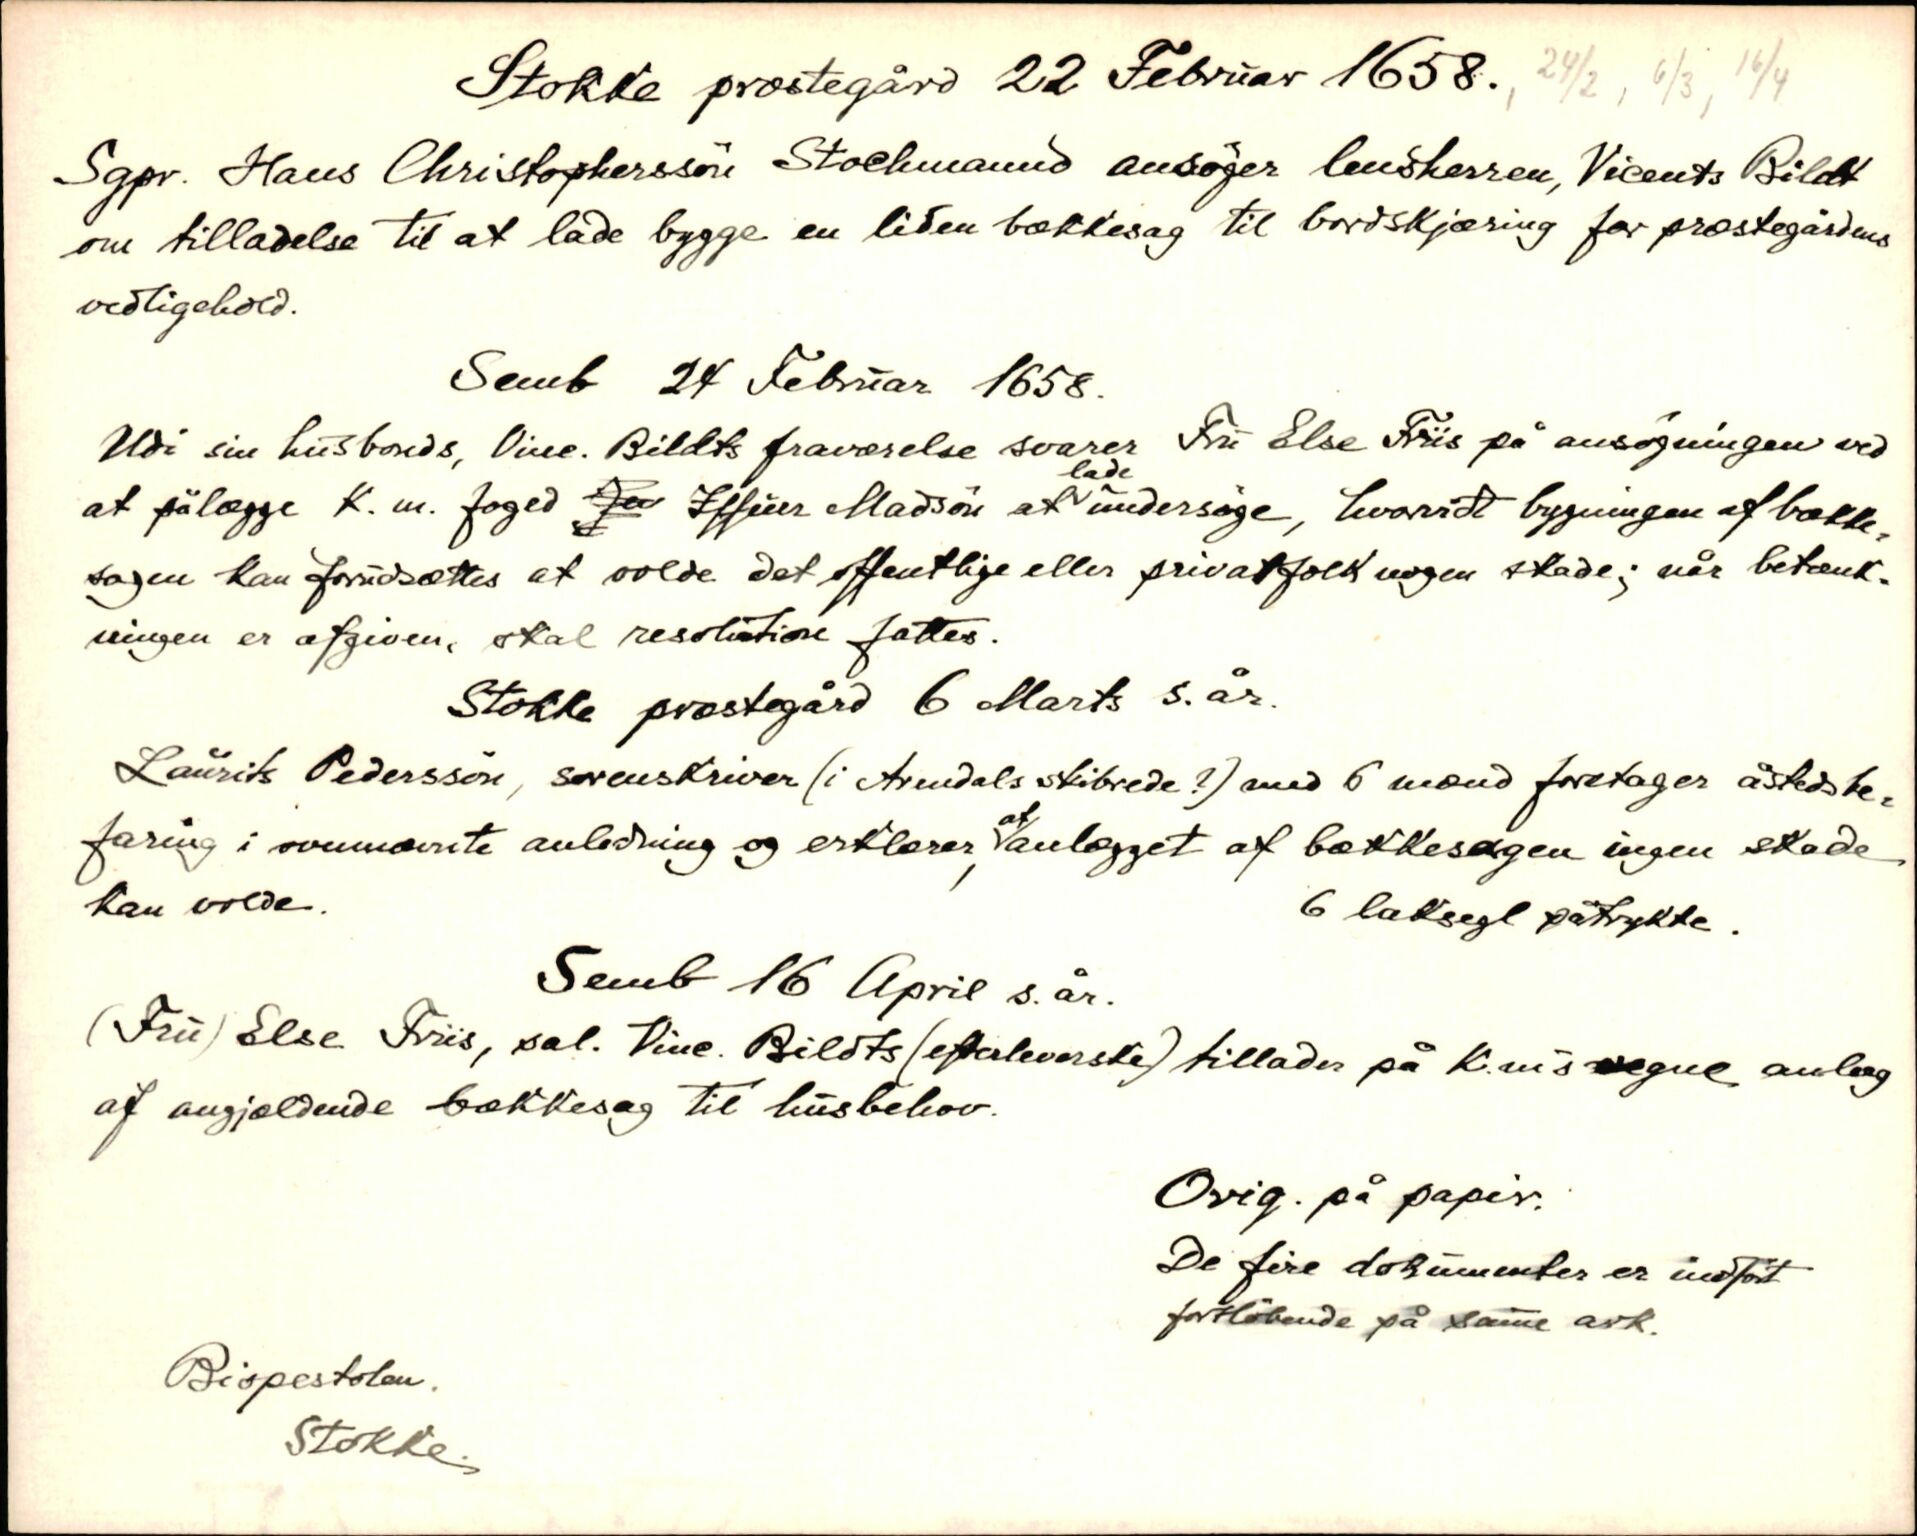 Stokke præstegård 22 Februar 1658., 24/2, 6/3, 16/4
Sgpr. Hans Christopherssön Stochmannd ansöger lensherren, Vicents Bildt
om tilladelse til at lade bygge en liden bækkesag til bordskjæring for præstegårdens
vedligehold.
Semb 24 Februar 1658.
Udi sin husbonds, Vinc. Bildts fraværelse svarer Fru Else Friis på ansögningen ved
at pålægge K. m. foged Iffuer Madsön at lade undersöge, hvorvidt bygningen af bække-
sagen kan forudsættes at volde det offentlige eller privatfolk nogen skade; når betænk-
ningen er afgiven, skal resolution fattes.
Stokke præstegård 6 Marts s. år.
Laurits Pederssön, sorenskriver (i Arendals skibrede?) med 6 mænd foretager åstedsbe-
faring i ovennævnte anledning og erklærer, at anlægget af bækkesagen ingen skade
kan volde.
6 laksegl påtrykte.
Semb 16 April s. år.
(Fru) Else Friis, sal. Vinc. Bildts (efterleverske) tillader på K.m's vegne anlæg
af angjældende bækkesag til husbehov.
Orig. på papir.
De fire dokumenter er indført
fortløbende på samme ark.
Bispestolen.
Stokke.